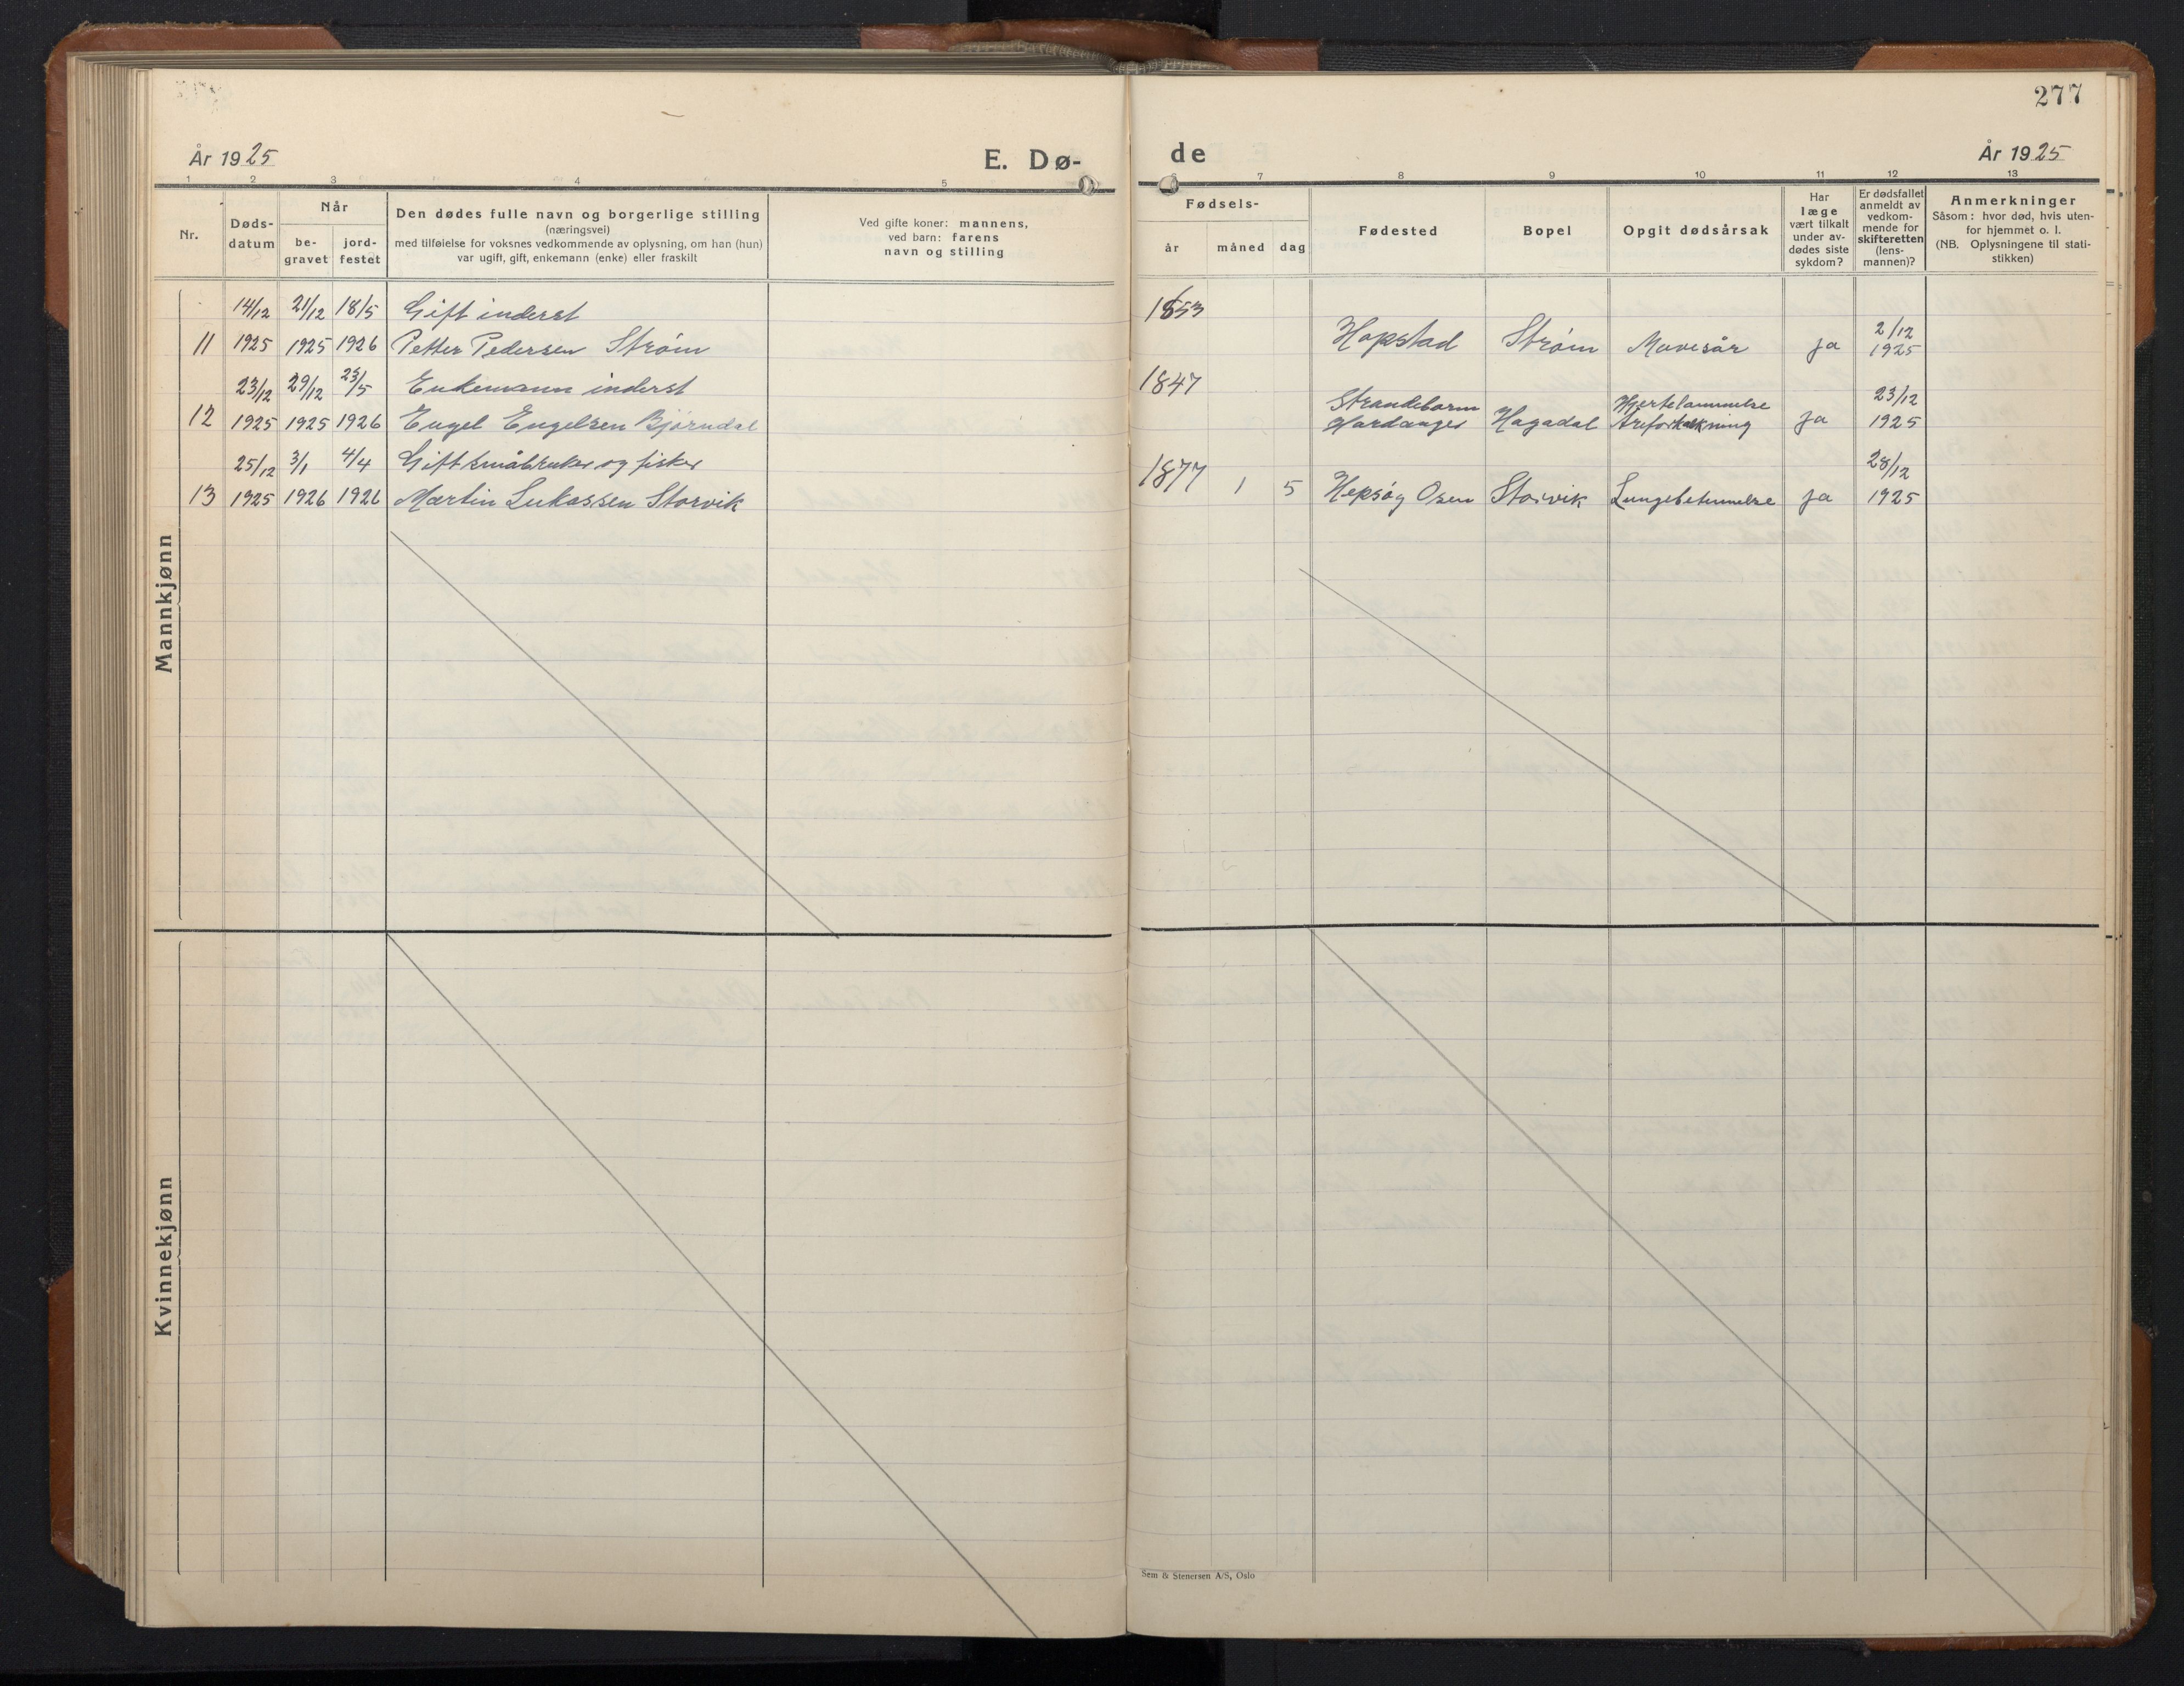 277
År 1925
E. Dø-
de
År 1925
1 2 3 4 5
7 8 9 10 11 12 13
Nr.
Døds-
datum
Når
be-
gravet
jord-
festet
Den dødes fulle navn og borgerlige stilling
(næringsvei)
med tilføielse for voksnes vedkommende av oplysning, om han (hun)
var ugift, gift, enkemann (enke) eller fraskilt
Ved gifte koner: mannens,
ved barn: farens
navn og stilling
Fødsels-
år måned dag
Fødested
Bopel
Opgit dødsårsak
Har
læge
vært tilkalt
under av-
dødes siste
sykdom?
Er dødsfallet
anmeldt av
vedkom-
mende for
skifteretten
(lens-
mannen)?
Anmerkninger
Såsom: hvor død, hvis uten-
for hjemmet o. l.
(NB. Oplysningene til stati-
stikken)
Mannkjønn
14/12 21/12 18/5 Gift inderst 1853
11 1925 1925 1926 Petter Pedersen Strøm Hopstad Strøm Mavesår ja 2/12 1925
23/12 29/12 23/5 Enkemann inderst 1847 Strandebarm Hjertelammelse 23/12
12 1925 1925 1926 Engel Engelsen Bjørndal Hardanger Hagadal Åreforkalkning ja 1925
25/12 3/1 4/4 Gift småbruker og fisker 1877 28/12
13 1925 1926 1926 Martin Lukassen Storvik 1 5 Hepsøy Osen Storvik Lungebetennelse ja 1925
Kvinnekjønn
Sem & Stenersen A/S, Oslo